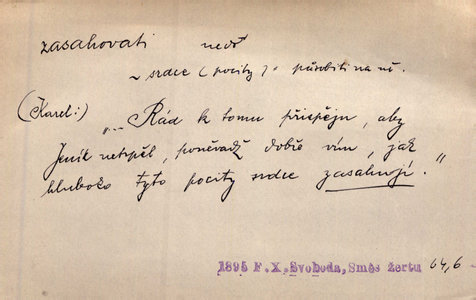 zasahovati nedok
~ srdce (pocity) = působiti na ně.
(Karel:)
„... Rád k tomu přispěju, aby
Jeník netrpěl, poněvadž dobře vím, jak
hluboko tyto pocity srdce zasahují."
1895 F.X.Svoboda, Směs žertu 64,6